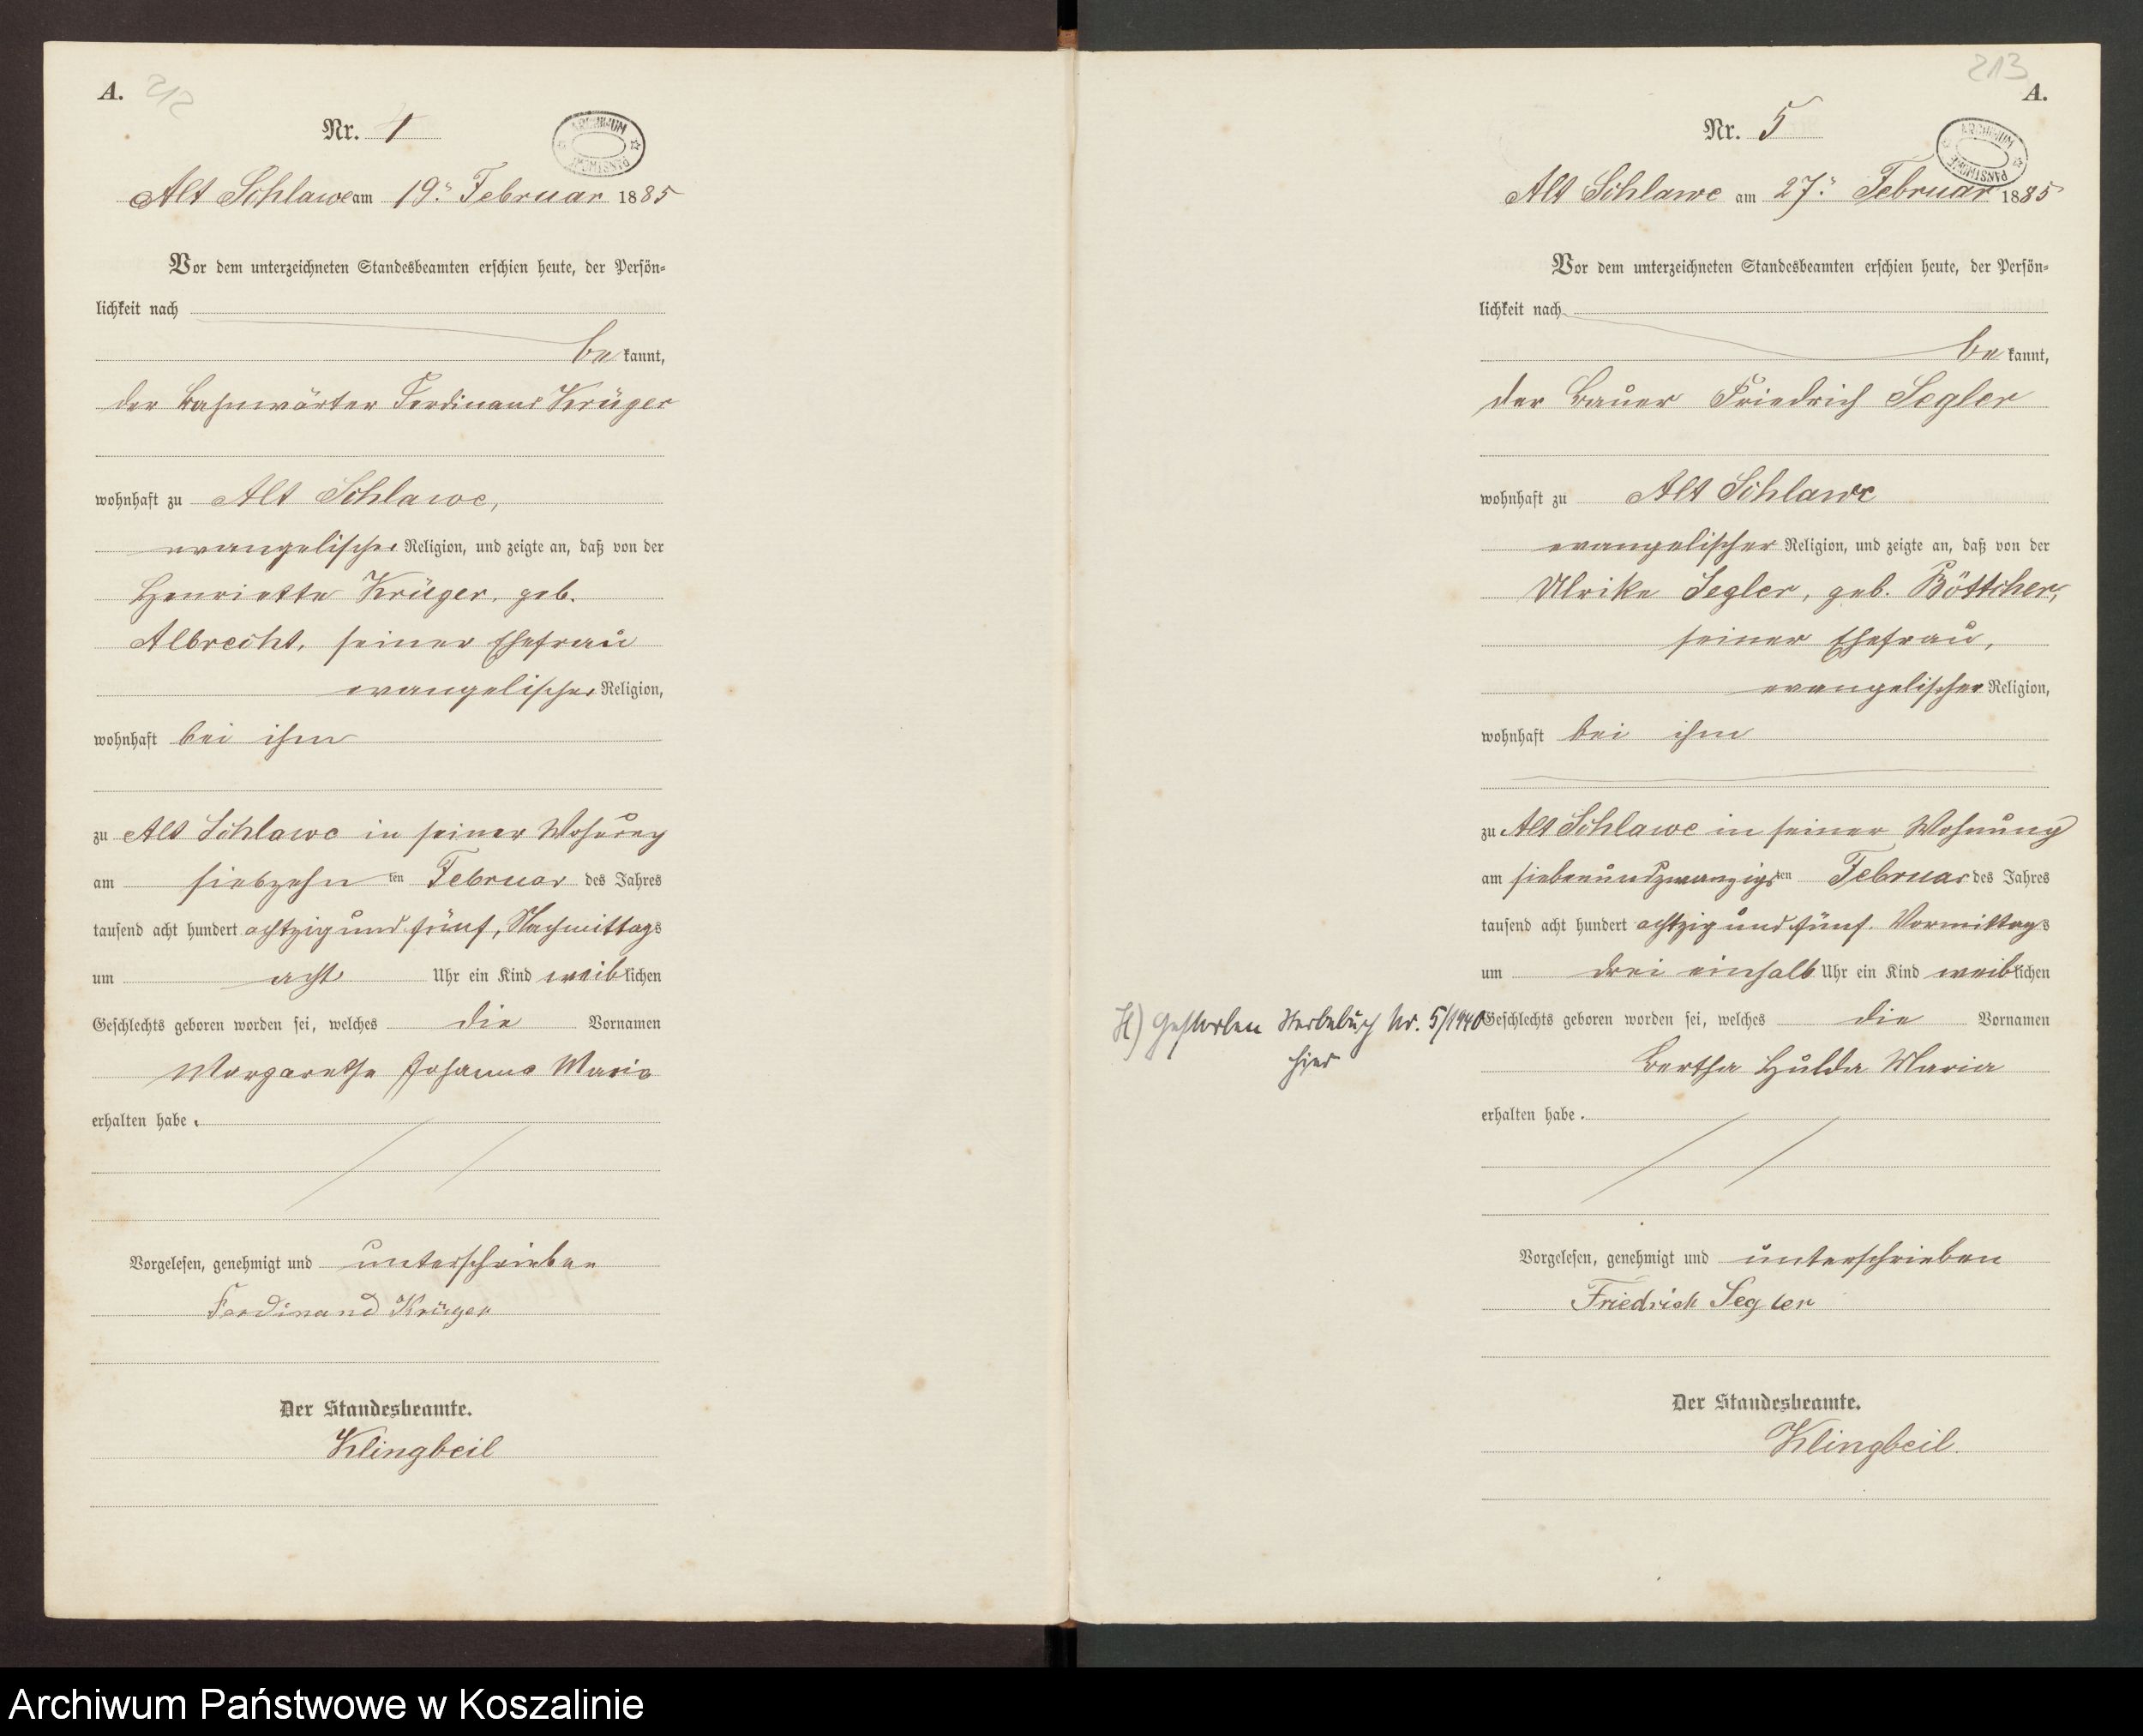 A. 212
Nr. 4
ARCHIWUM PAŃSTWOWE
Alt Schlawe am 19. Februar 1885
Vor dem unterzeichneten Standesbeamten erschien heute, der Persön-
lichkeit nach
bekannt,
der Bahnwärter Ferdinand Krüger
wohnhaft zu Alt Schlawe,
evangelischer Religion, und zeigte an, daß von der
Henriette Krüger, geb.
Albrecht, seiner Ehefrau
evangelischer Religion,
wohnhaft bei ihm
zu Alt Schlawe in seiner Wohnung
am siebzehnten Februar des Jahres
tausend acht hundert achtzig und fünf, Nachmittags
um acht Uhr ein Kind weiblichen
Geschlechts geboren worden sei, welches die Vornamen
Margarethe Johanna Maria
erhalten habe.
Vorgelesen, genehmigt und unterschrieben
Ferdinand Krüger
Der Standesbeamte.
Klingbeil
213
A.
Nr. 5
ARCHIWUM PAŃSTWOWE
Alt Schlawe am 27. Februar 1885
Vor dem unterzeichneten Standesbeamten erschien heute, der Persön-
lichkeit nach
bekannt,
der Bauer Friedrich Segler
wohnhaft zu Alt Schlawe
evangelischer Religion, und zeigte an, daß von der
Ulrike Segler, geb. Böttcher,
seiner Ehefrau,
evangelischer Religion,
wohnhaft bei ihm
zu Alt Schlawe in seiner Wohnung
am siebenundzwanzigsten Februar des Jahres
tausend acht hundert achtzig und fünf. Vormittags
um drei einhalb Uhr ein Kind weiblichen
Geschlechts geboren worden sei, welches die Vornamen
Bertha Hulda Maria
erhalten habe.
H) Gestorben Sterbebuch Nr. 5/1940
hier
Vorgelesen, genehmigt und unterschrieben
Friedrich Segler
Der Standesbeamte.
Klingbeil.
Archiwum Państwowe w Koszalinie